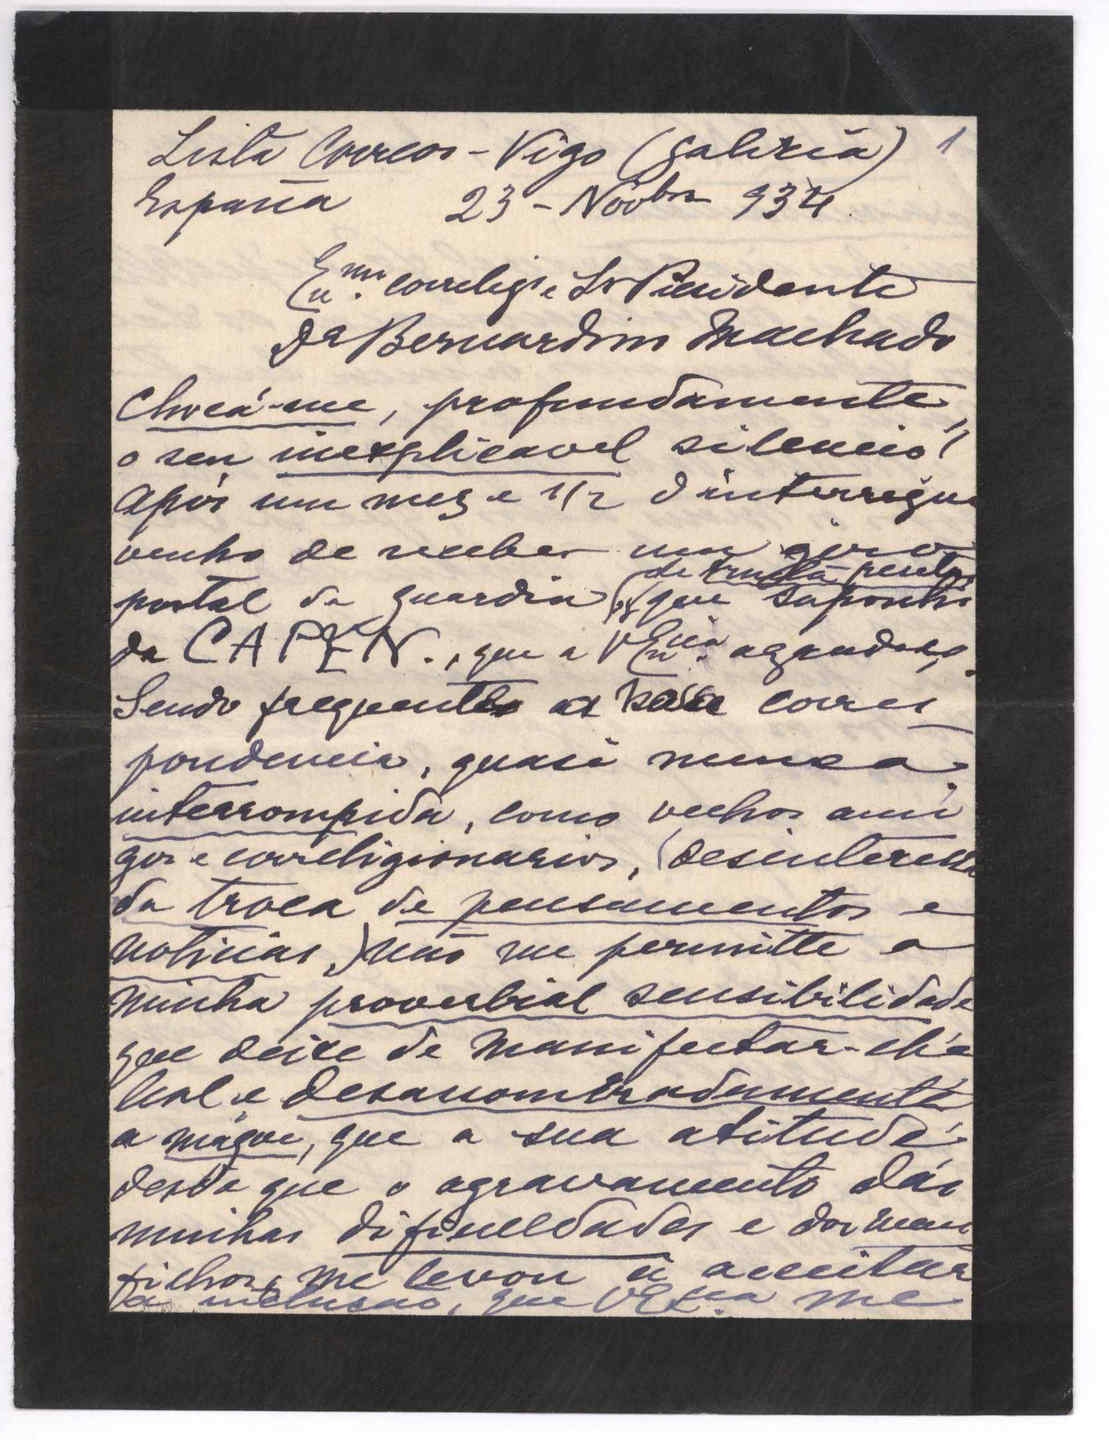 Lista Correos - Vigo (Galizia) 1
España 23 - Novbro 934
Exmo. correligo e Sr Presidente
Dr Bernardino Machado
Chocá-me, profundamente,
o seu inexplicavel silencio!
Após um mez e 1/2 d'interregno
venho de receber um giro
de trinta pesetas,
postal da guardia que suponho
da CAPEN., que a V Excia. agradeço.
Sendo frequente a nossa corres
pondencia, quasi nunca
interrompida, como velhos ami
gos e correligionarios, (desinteressa
da troca de pensamentos e
noticias,) não me permitte a
minha proverbial sensibilidade
que deixe de manifestar-lh'a
leal e desassombradamente
a mágoa, que a sua atitude
desde que o agravamento dás
minhas dificuldades e dos meus
filhos, me levou a aceitar
a inclusão, que V Excia me